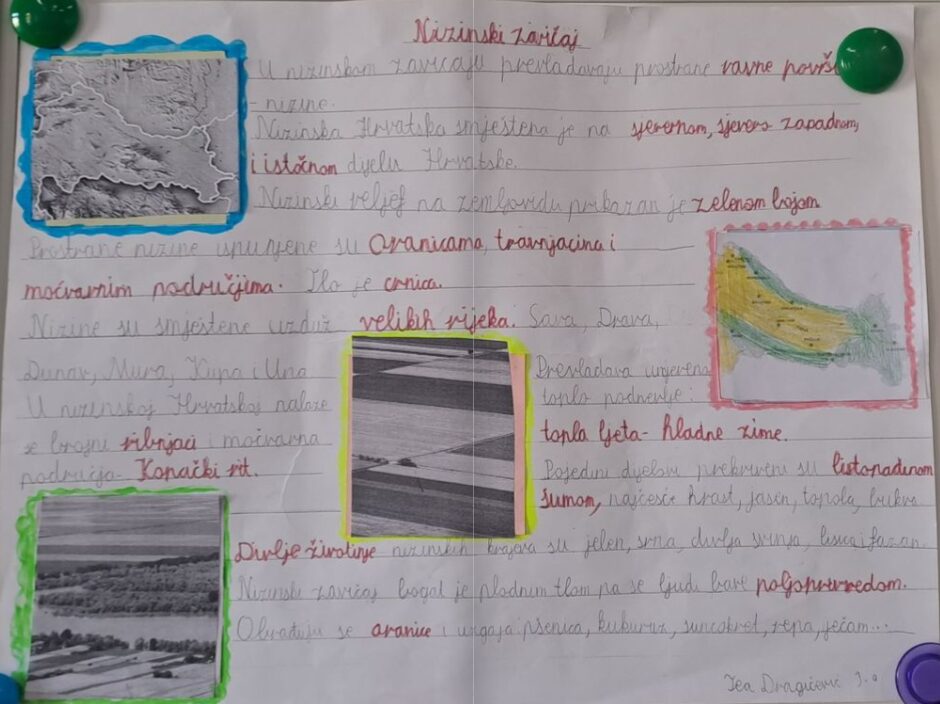 Nizinski zavičaj
U nizinskom zavičaju prevladavaju prostrane ravne površ
- nizine.
Nizinska Hrvatska smještena je na sjevernom, sjevero zapadnom,
i istočnom dijelu Hrvatske.
Nizinski reljef na zemljovidu prikazan je zelenom bojom
Prostrane nizine ispunjene su oranicama, travnjacima i
močvarnim područjima. Tlo je crnica.
Nizine su smještene uzduž velikih rijeka. Sava, Drava,
Dunav, Mura, Kupa i Una
U nizinskoj Hrvatskoj nalaze
se brojni ribnjaci i močvarna
područja- Kopački rit.
Prevladava umjereno
toplo podneblje:
topla ljeta- hladne zime.
Pojedini dijelovi prekriveni su listopadnom
šumom, najčešće hrast, jasen, topola, bukva
Divlje životinje nizinskih krajeva su jelen, srna, divlja svinja, lisica i fazan.
Nizinski zavičaj bogat je plodnim tlom pa se ljudi bave poljoprivredom.
Obrađuju se oranice i uzgaja pšenica, kukuruz, suncokret, repa, ječam...
Tea Dragičević 3.a